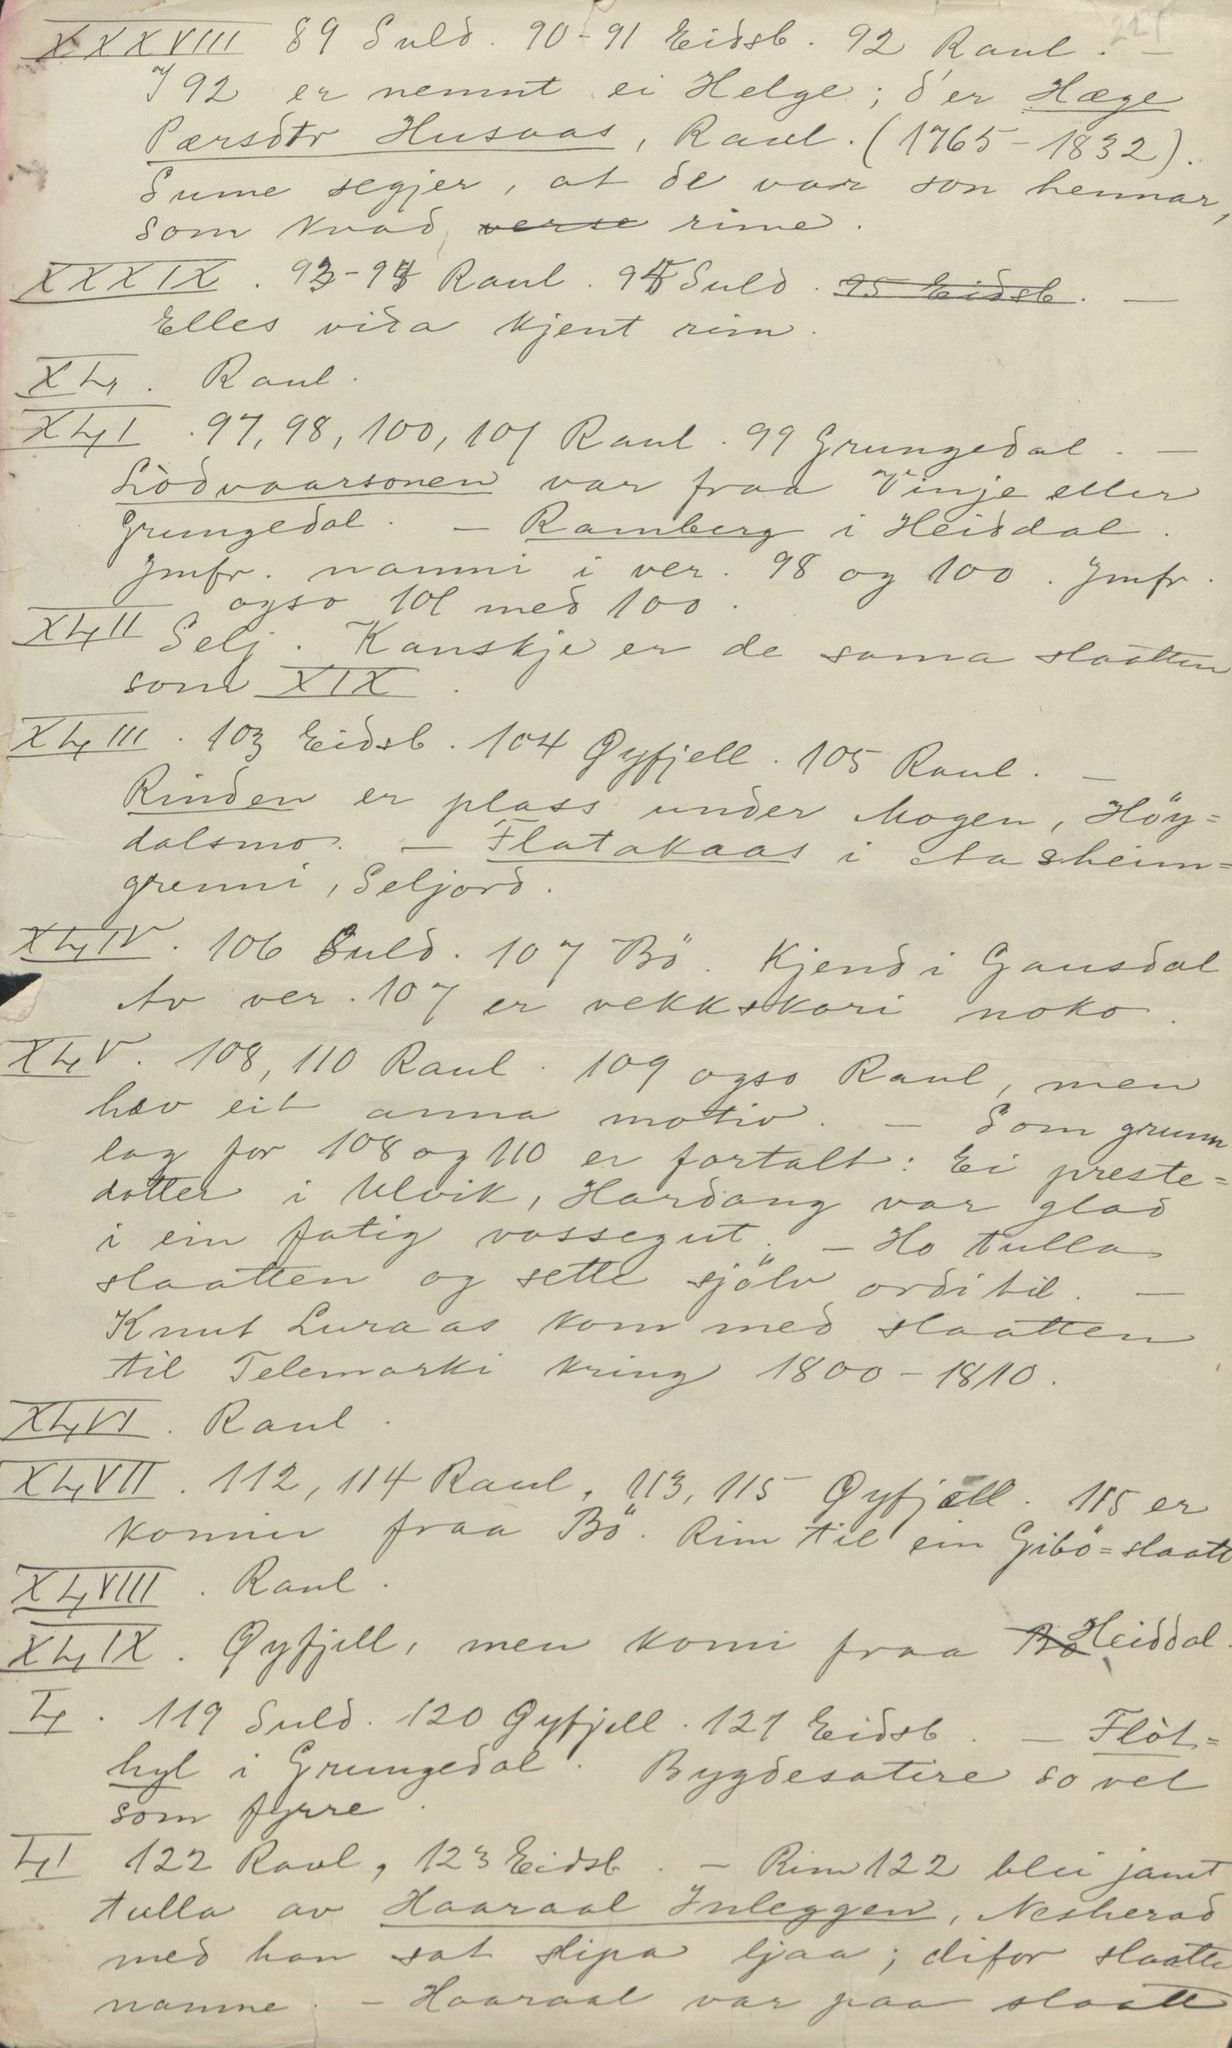 XXXVIII 89 Suld. 90-91 Eidsb. 92 Raul. —
I 92 er nemnt ei Helge; d'er Hæge
Pærsdtr Husaas, Raul. (1765-1832).
Sume segjer, at de var son hennar,
som kvad verse rime.
XXXIX. 93-94 Raul. 95 Suld. 95 Eidsb. —
Elles vida kjent rim.
XL. Raul.
XLI. 97, 98, 100, 101 Raul. 99 Grungedal. —
Lòdvaarsonen var fraa Vinje eller
Grungedal. — Ramberg i Heidal.
Jmfr. namni i ver. 98 og 100. Jmfr.
ogso 101 med 100.
XLII Selj. Kanskje er de sama slaatten
som XIX.
XLIII. 103 Eidsb. 104 Øyfjell. 105 Raul. —
Rinden er plass under Mogen, Höy=
dalsmo. — Flatakaas i Aasheim=
grenni, Seljord.
XLIV. 106 Suld. 107 Bö. Kjend i Gausdal
Av ver. 107 er vekkskori noko.
XLV. 108, 110 Raul. 109 ogso Raul, men
hev eit anna motiv. — Som grunn
lag for 108 og 110 er fortalt: Ei preste=
dotter i Ulvik, Hardang var glad
i ein fatig vossegut. — Ho tulla
slaatten og sette sjölv ordi til. —
Knut Luraas kom med slaatten
til Telemarki kring 1800-1810.
XLVI. Raul.
XLVII. 112, 114 Raul, 113, 115 Øyfjell. 115 er
komin fraa Bö. Rim til ein Gibö=slaatt
XLVIII. Raul.
XLIX. Øyfjell, men komi fraa Bö Heiddal.
L. 119 Suld. 120 Øyfjell. 121 Eidsb. — Flòt=
hyl i Grungedal. Bygdesatire so vel
som fyrre.
LI 122 Raul, 123 Eidsb. — Rim 122 blei jamt
tulla av Haaraal Inleggen, Nesherad
med han sat slipa ljaa; difor slaatte
namne. — Haaraal var paa slaatt